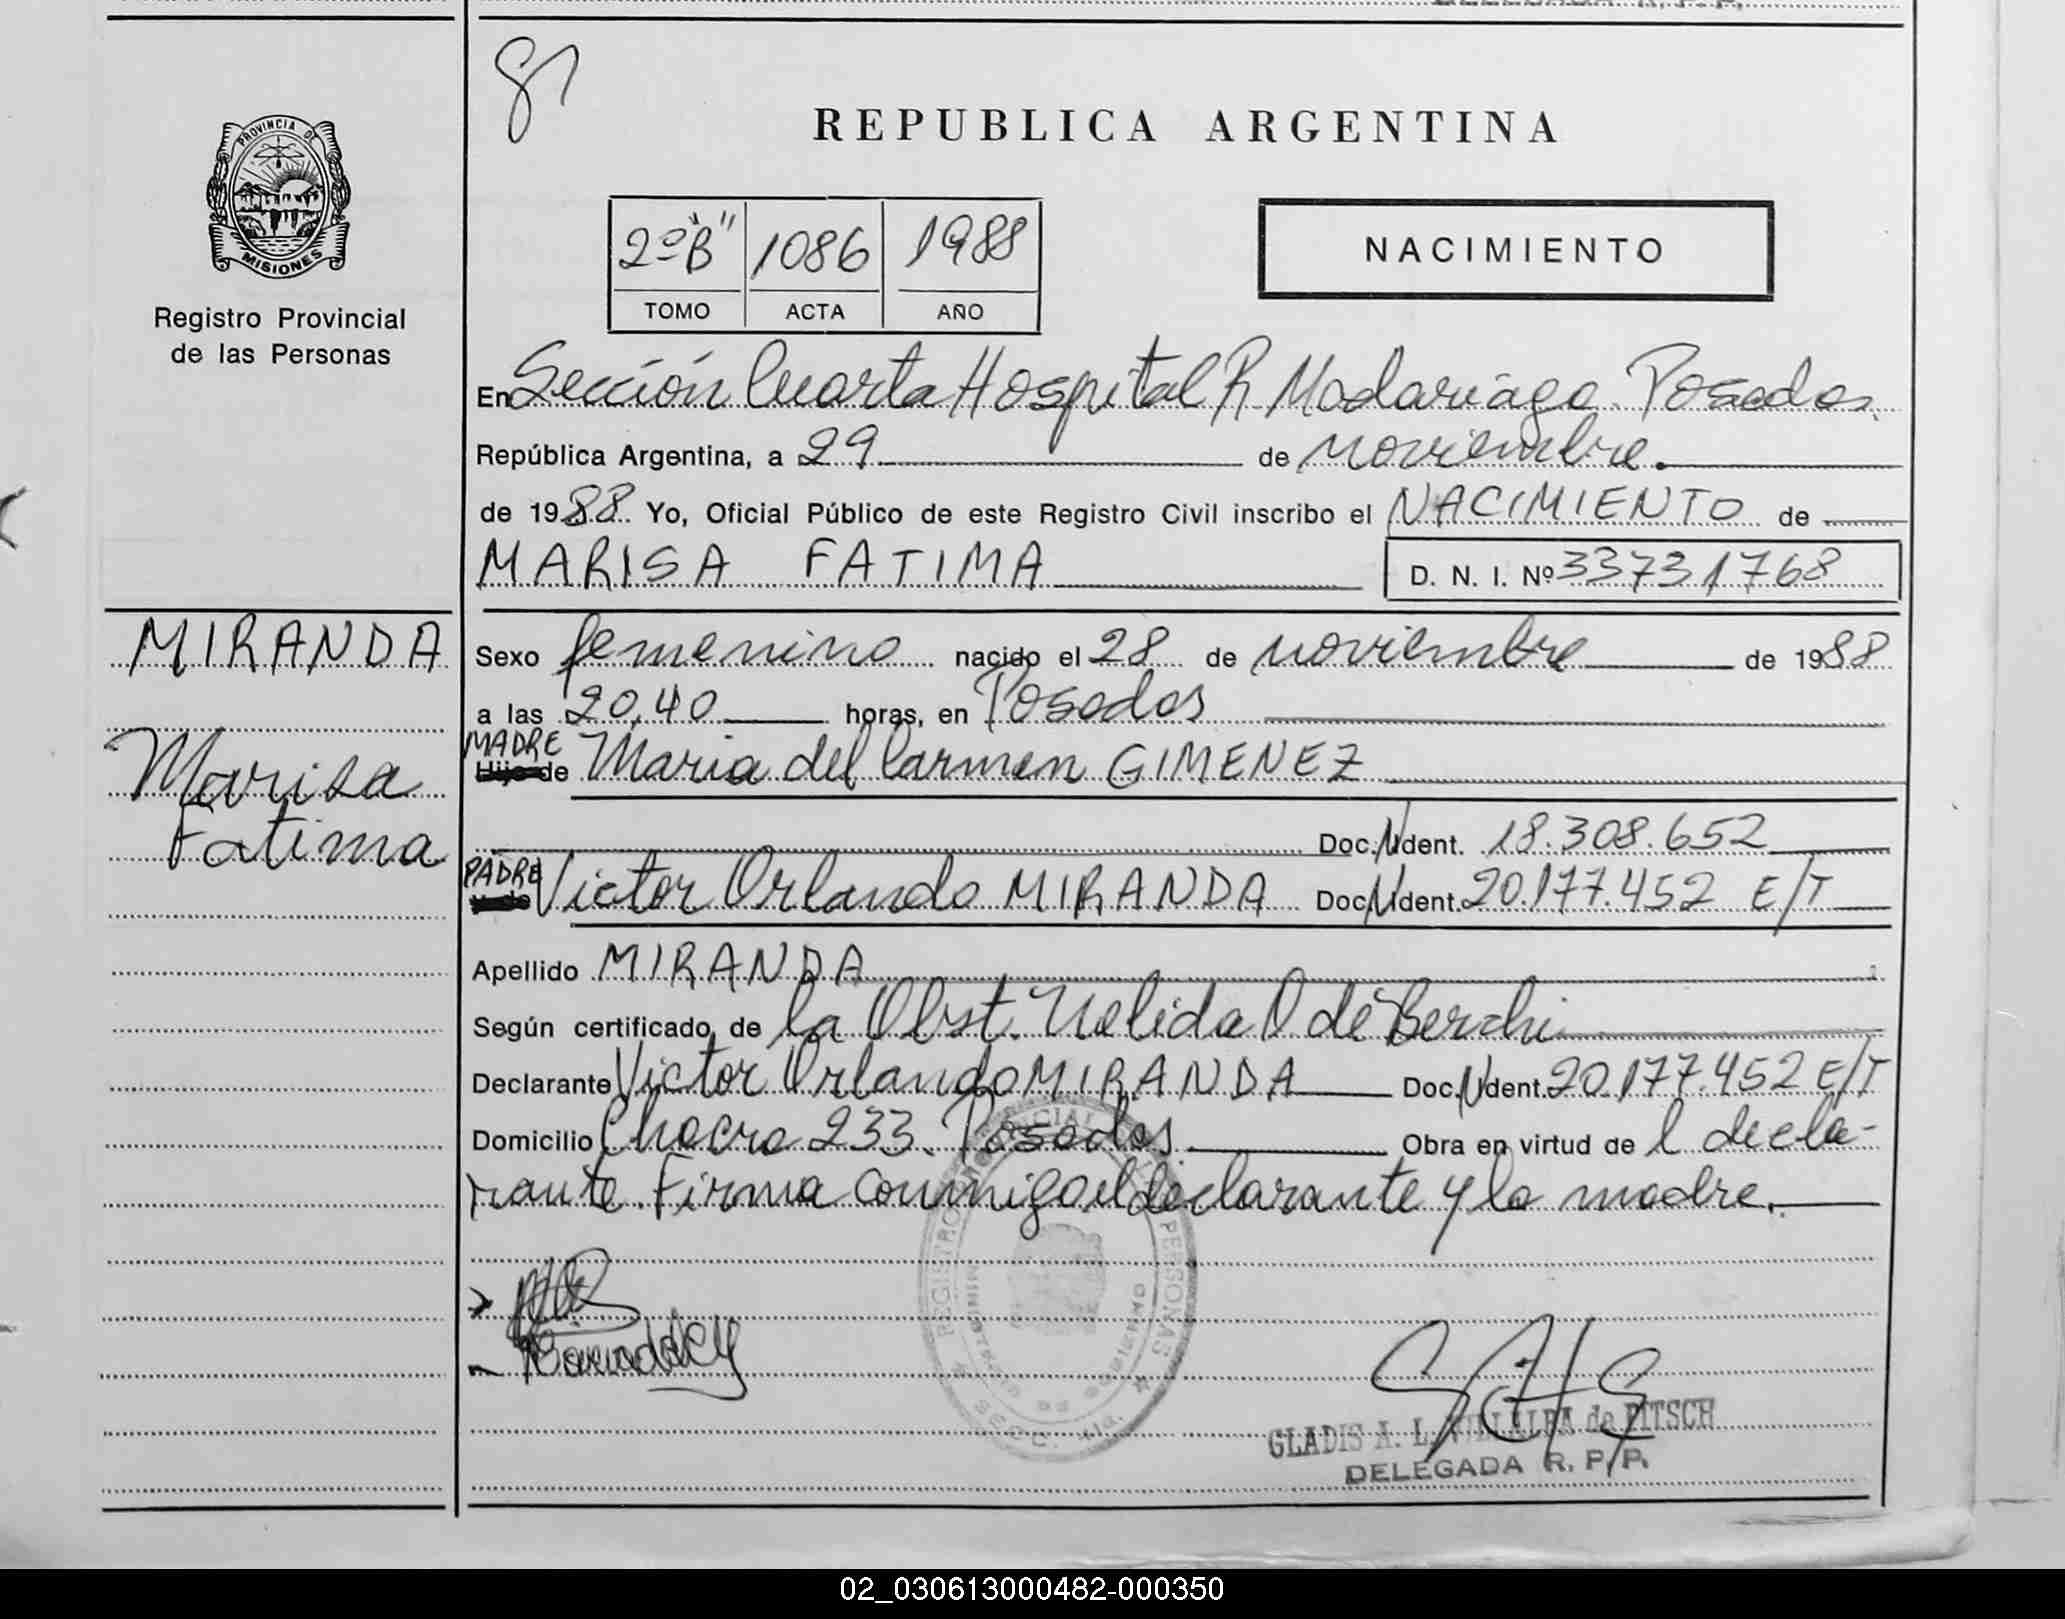 81
REPUBLICA ARGENTINA
PROVINCIA DE
MISIONES
Registro Provincial
de las Personas
2º "B" 1086 1988
TOMO ACTA AÑO
NACIMIENTO
En Sección Cuarta Hospital R. Madariaga. Posadas.
República Argentina, a 29 de noviembre.
de 1988. Yo, Oficial Público de este Registro Civil inscribo el NACIMIENTO de
MARISA FATIMA D. N. I. Nº 33731768
MIRANDA
Marisa
Fatima
Sexo femenino nacido el 28 de noviembre de 1988
a las 20,40 horas, en Posadas
MADRE
Hijo de Maria del Carmen GIMENEZ
Doc. N Ident. 18.308.652
PADRE Victor Orlando MIRANDA Doc. N Ident. 20.177.452 E/T
Apellido MIRANDA
Según certificado de la Obst. Nelida O de Berchi
Declarante Victor Orlando MIRANDA Doc. N Ident. 20.177.452 E/T
Domicilio Chacra 233. Posadas. Obra en virtud de l decla-
rante. Firma conmigo el declarante y la madre.
REGISTRO PROVINCIAL PERSONAS
MINISTERIO DE GOBIERNO
SECC. 4ta.
GLADIS A. L. VILLALBA de FITSCH
DELEGADA R. P. P.
02_030613000482-000350